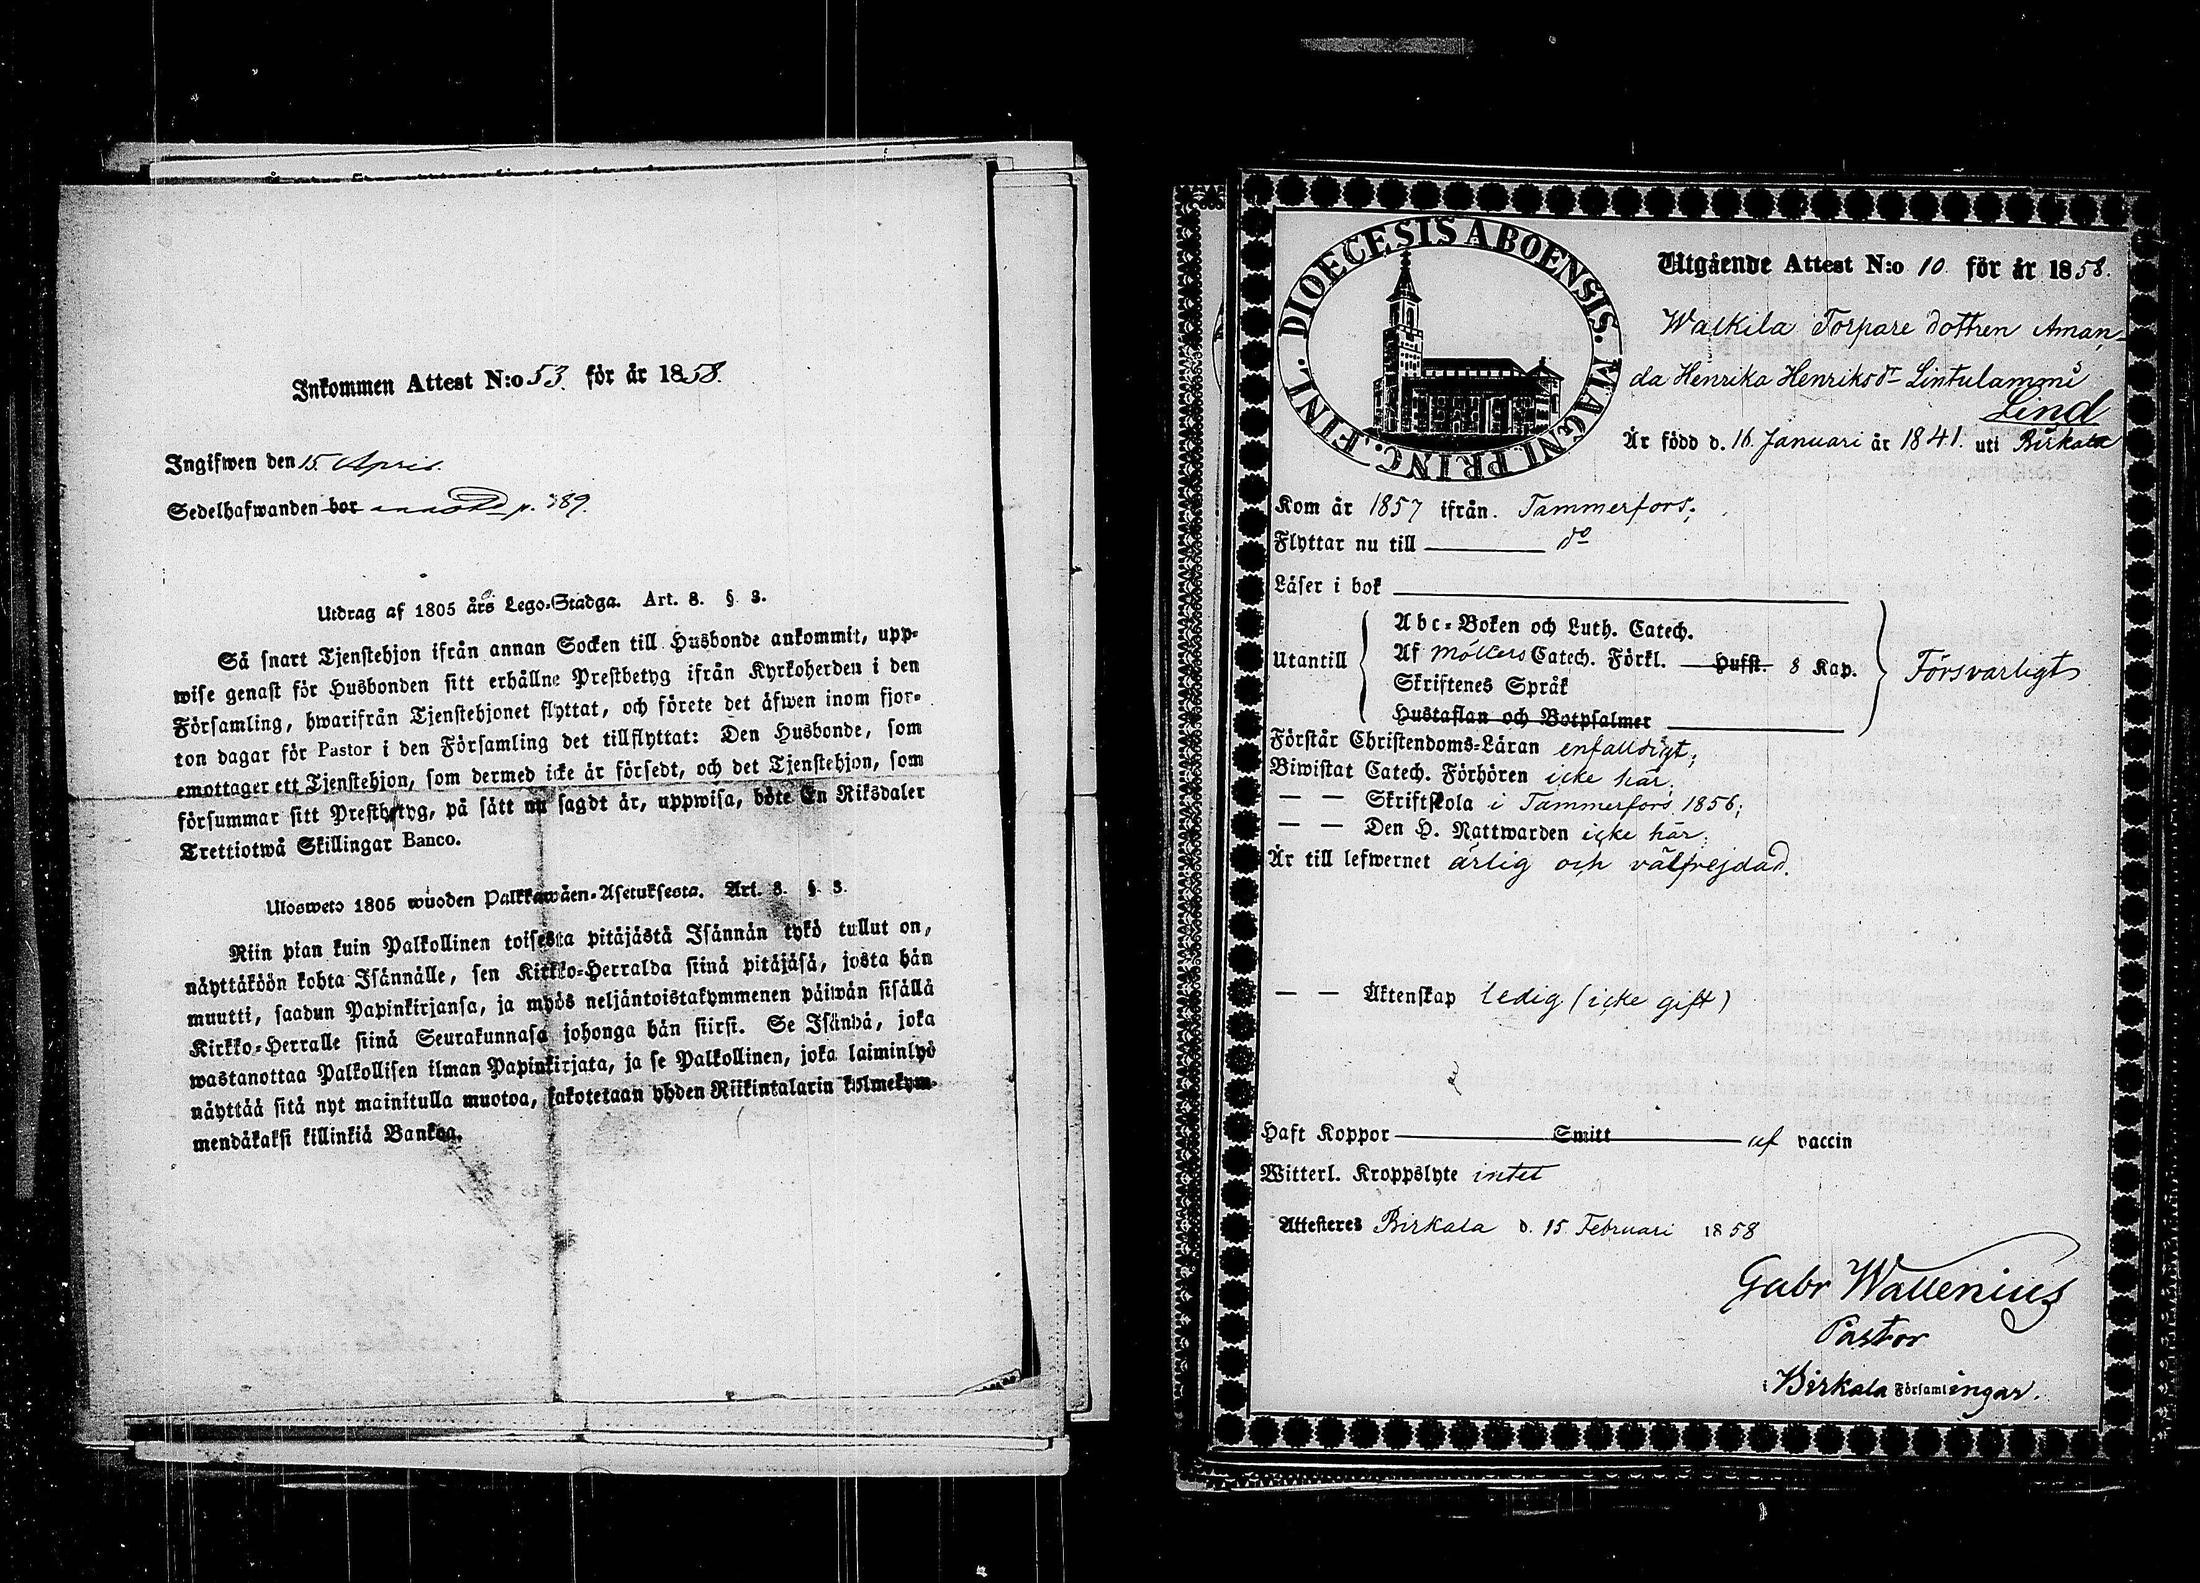 Inkommen Attest N:o 53. för år 1858.
Ingifwen den 15. April.
Sedelhafwanden bor p. 389.
Utdrag af 1805 års Lego-Stadga. Art. 8. § 3.
Så snart Tjenstehjon ifrån annan Socken till Husbonde ankommit, upp-
wise genast för Husbonden sitt erhållne Prestbetyg ifrån Kyrkoherden i den
Församling, hwarifrån Tjenstehjonet flyttat, och förete det äfwen inom fjor-
ton dagar för Pastor i den Församling det tillflyttat: Den Husbonde, som
emottager ett Tjenstehjon, som dermed icke är försedt, och det Tjenstehjon, som
försummar sitt Prestbetyg, på sätt nu sagdt är, uppwisa, böte En Riksdaler
Trettiotwå Skillingar Banco.
Ulosweto 1805 wuoden Palkkawäen-Asetuksesta. Art. 8. § 3.
Niin pian kuin Palkollinen toisesta pitäjästä Isännän tykö tullut on,
näyttäköön kohta Isännälle, sen Kirkko-Herralda siinä pitäjäsä, josta hän
muutti, saadun Papinkirjansa, ja myös neljäntoistakymmenen päiwän sisällä
Kirkko-Herralle siinä Seurakunnasa johonga hän siirsi. Se Isändä, joka
wastanottaa Palkollisen ilman Papinkirjata, ja se Palkollinen, joka laiminlyö
näyttää sitä nyt mainitulla muotoa, sakotetaan yhden Riikintalarin kolmekym-
mendäkaksi killinkiä Bankoa.
DIOECESIS ABOENSIS. MAGNI PRINC. FINL.
Utgående Attest N:o 10. för år 1858.
Walkila Torpare dottren Aman-
da Henrika Henriksdr Lintulammi
Lind
Är född d. 16. Januari år 1841. uti Birkala
Kom år 1857 ifrån. Tammerfors;
Flyttar nu till do
Läser i bok
Abc-Boken och Luth. Catech.
Utantill Af Möllers Catech. Förkl. Hufst. 8 Kap. Försvarligt
Skriftenes Språk
Hustaflan och Botpsalmer
Förstår Christendoms-Läran enfalldigt;
Biwistat Catech. Förhören icke här;
— — Skriftskola i Tammerfors 1856;
— — Den H. Nattwarden icke här;
Är till lefwernet ärlig och välfrejdad.
— — Äktenskap ledig (icke gift)
Haft Koppor Smitt af vaccin
Witterl. Kroppslyte intet
Attesteres Birkala d. 15. Februari 1858
Gabr Wallenius
Pastor
i Birkala Församlingar.